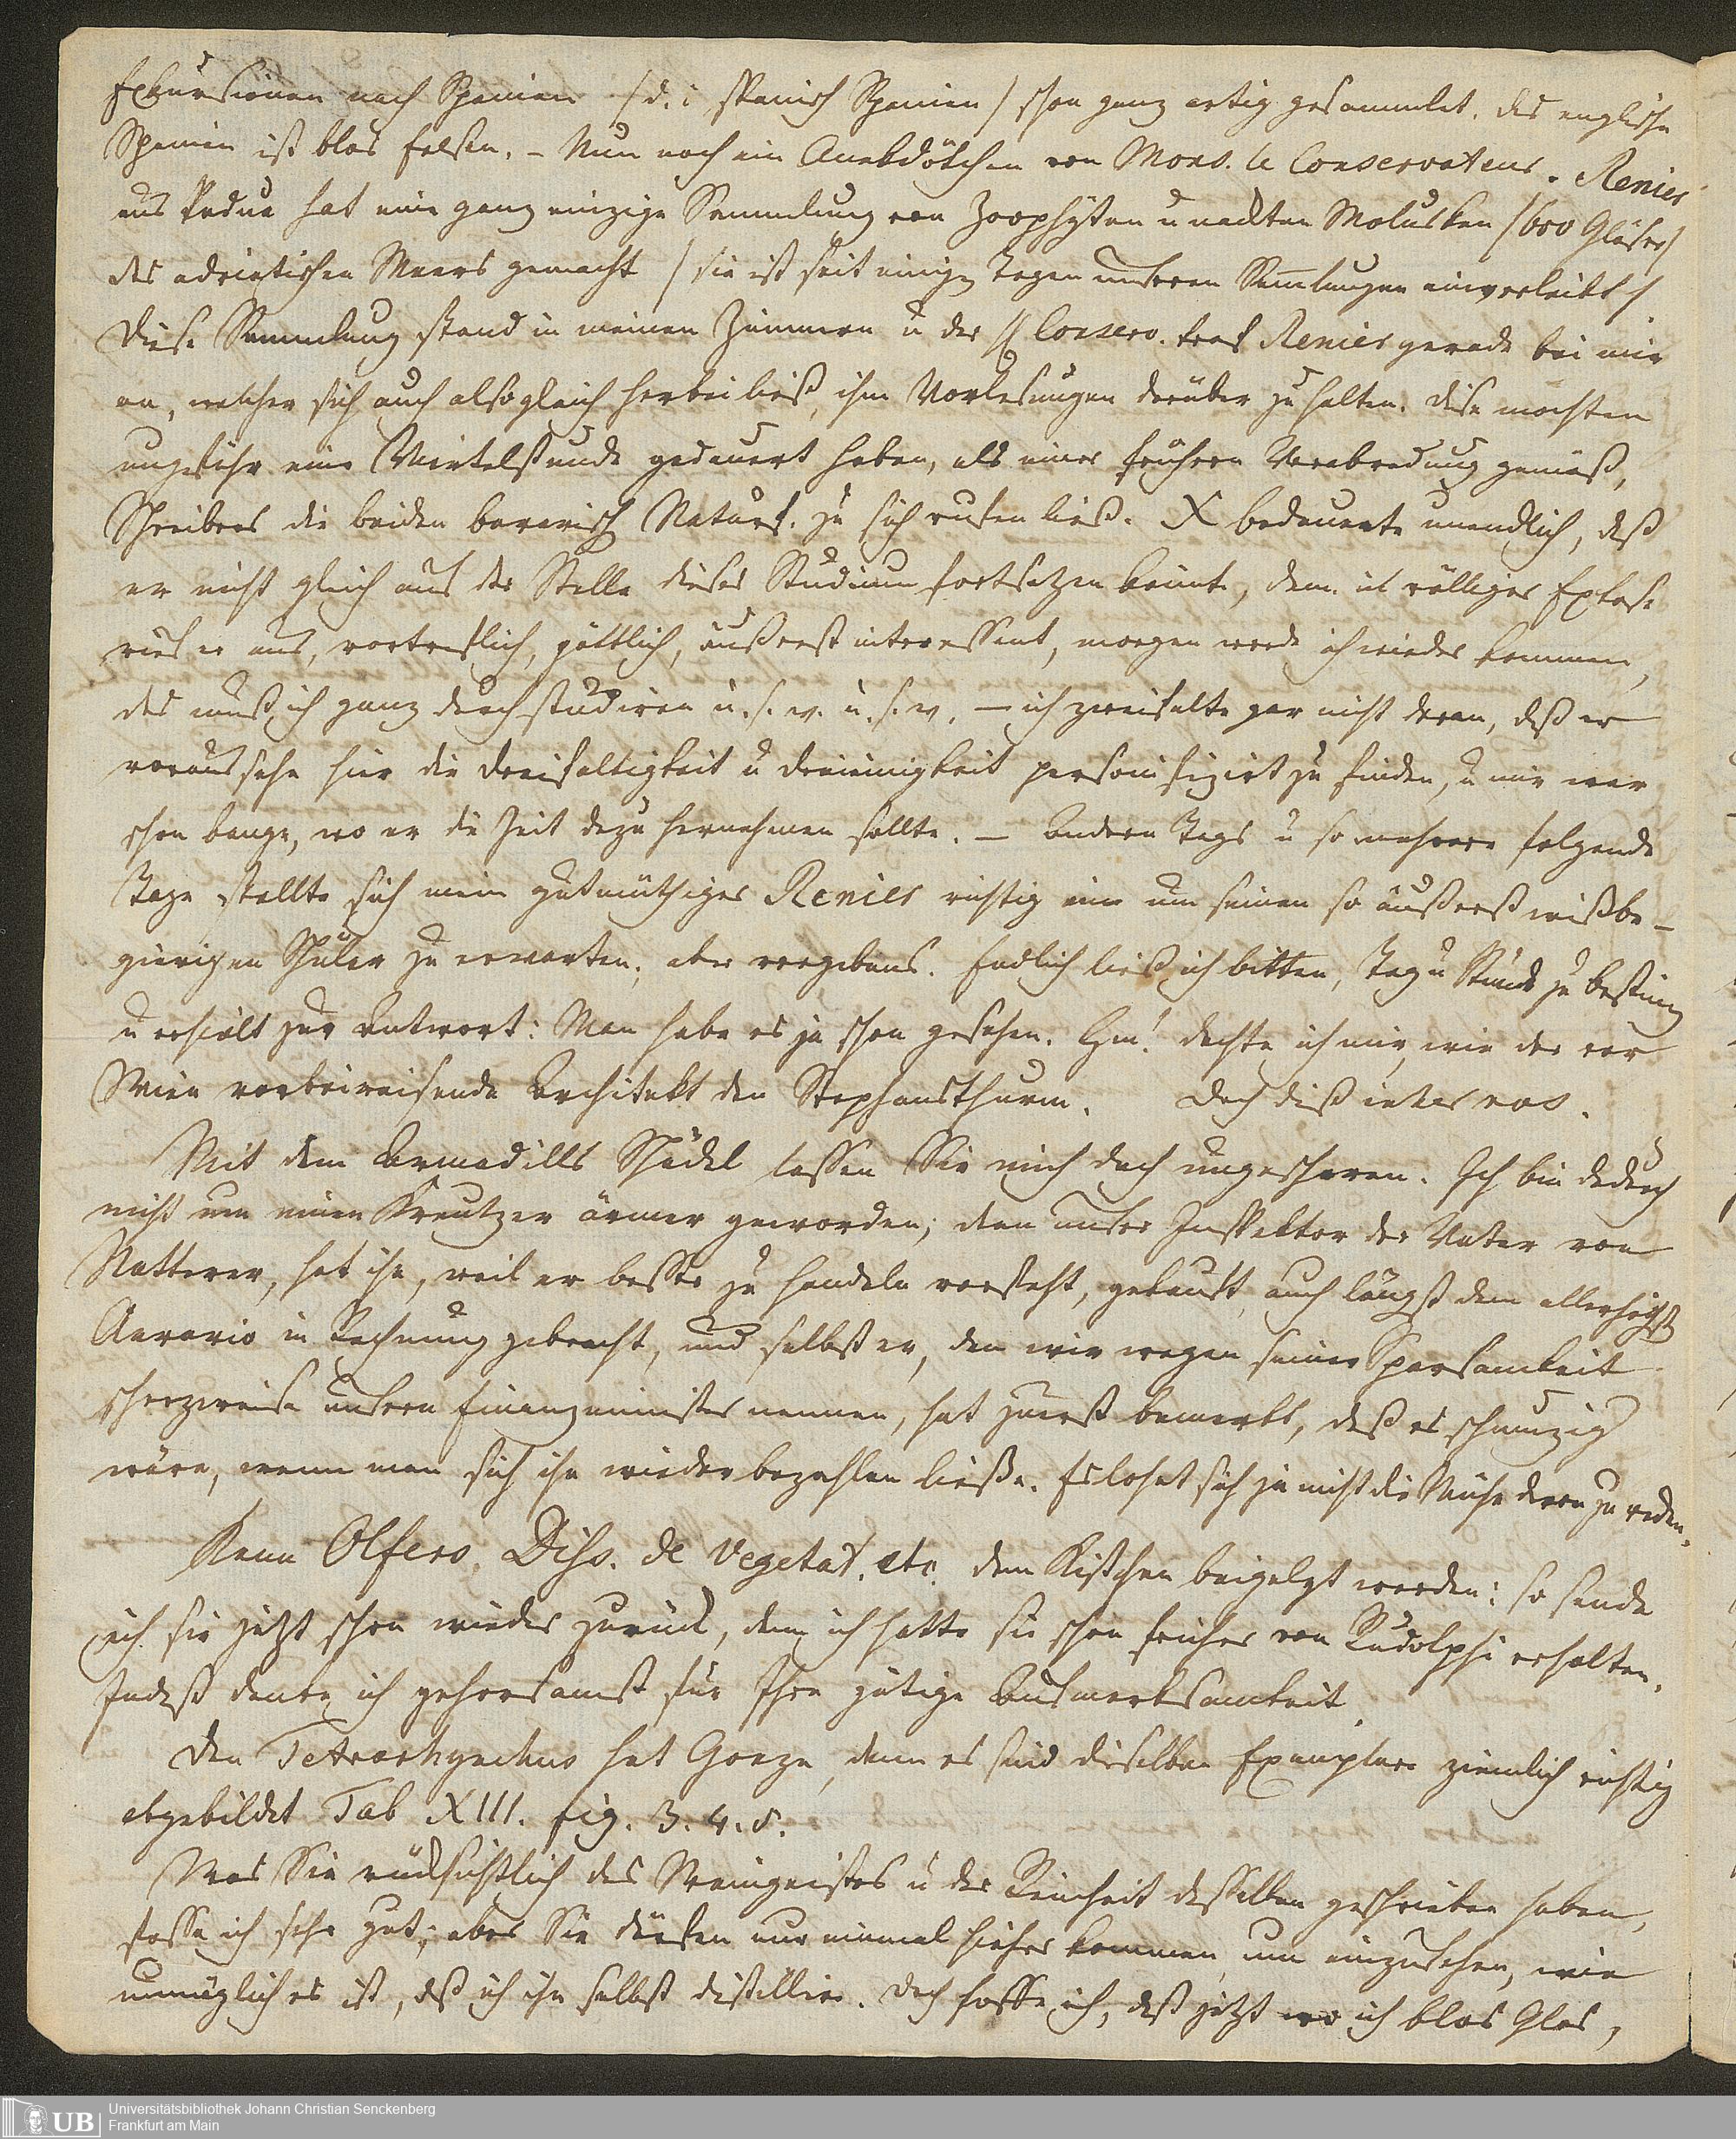 Exkursionen nach Spanien (d. i. spanisch Spanien) schon ganz artig gesammlet. Das englische
Spanien ist blos Felsen. – Nun noch ein Anekdötchen von Mons. le Conservateur. Renier
aus Padua hat eine ganz einzige Sammlung von Zoophyten u nackten Molusken (600 Gläser)
des adriatischen Meers gemacht (sie ist seit einigen Tagen unseren Sammlungen einverleibt).
Diese Sammlung stand in meinen Zimmern u der Conserv. traf Renier gerade bei mir
an, welcher sich auch alsogleich herbei ließ, ihm Vorlesungen darüber zu halten. Diese mochten
ungefähr eine Viertelstunde gedauert haben, als einer frühern Verabredung gemäß,
Schreibers die beiden bavarisch Naturf. zu sich rufen ließ. X bedauerte unendlich, daß
er nicht gleich auf der Stelle dieses Studium fortsetzen könnte, denn in völliger Extase
rief er aus, vortreflich, göttlich, äußerst interessant, morgen werde ich wieder kommen,
das muß ich ganz durchstudiren u. s. w. u. s. w. – ich zweifelte gar nicht daran, daß er
voraussehe hier die Dreifaltigkeit u Dreieinigkeit personifizirt zu finden, u mir war
schon bange, wo er die Zeit dazu hernehmen sollte. – Andern Tags u so mehrere folgende
Tage stellte sich mein gutmüthiger Renier richtig ein um seinen so äußerst wißbe–
gierigen Schüler zu erwarten; aber vergebens. Endlich ließ ich bitten, Tag u Stunde zu bestimmen
u erhielt zur Antwort: Man habe es ja schon gesehen. Hm! dachte ich mir, wie der vor
Wien vorbeireisende Architekt den Stephansthurm. Doch diß inter nos.
Mit dem Armadills Schädel lassen Sie mich doch ungeschoren. Ich bin dadurch
nicht um einen Kreutzer ärmer geworden; denn unser Inspektor der Vater von
Natterer, hat ihn, weil er besser zu handeln versteht, gekauft, auch längst dem allerhöchsten
Aerario in Rechnung gebracht, und selbst er, den wir wegen seiner Sparsamkeit
scherzweise unsern Finanzminister nennen, hat zuerst bemerkt, daß es schmuzig
wäre, wenn man sich ihn wieder bezahlen ließe. Es lohnt sich ja nicht die Mühe davon zu reden.
Kann Olfers. Diss. de vegetat. etc. dem Kistchen beigelegt werden: so sende
ich sie jetzt schon wieder zurück, denn ich hatte sie schon früher von Rudolphi erhalten.
Indeß danke ich gehorsamst für Ihre gütige Aufmerksamkeit.
Den Tetrarhynchus hat Goeze, denn es sind dieselben Exemplare ziemlich richtig
abgebildet Tab XIII. fig. 3. 4. 5.
Was Sie rücksichtlich des Weingeistes u der Reinheit desselben geschrieben haben,
fasse ich sehr gut; aber Sie dürfen nur einmal hieher kommen, um einzusehen, wie
unmöglich es ist, daß ich ihn selbst distillire. Doch hoffe ich, daß jetzt wo ich blos Glas,
Universitätsbibliothek Johann Christian Senckenberg
Frankfurt am Main
UB